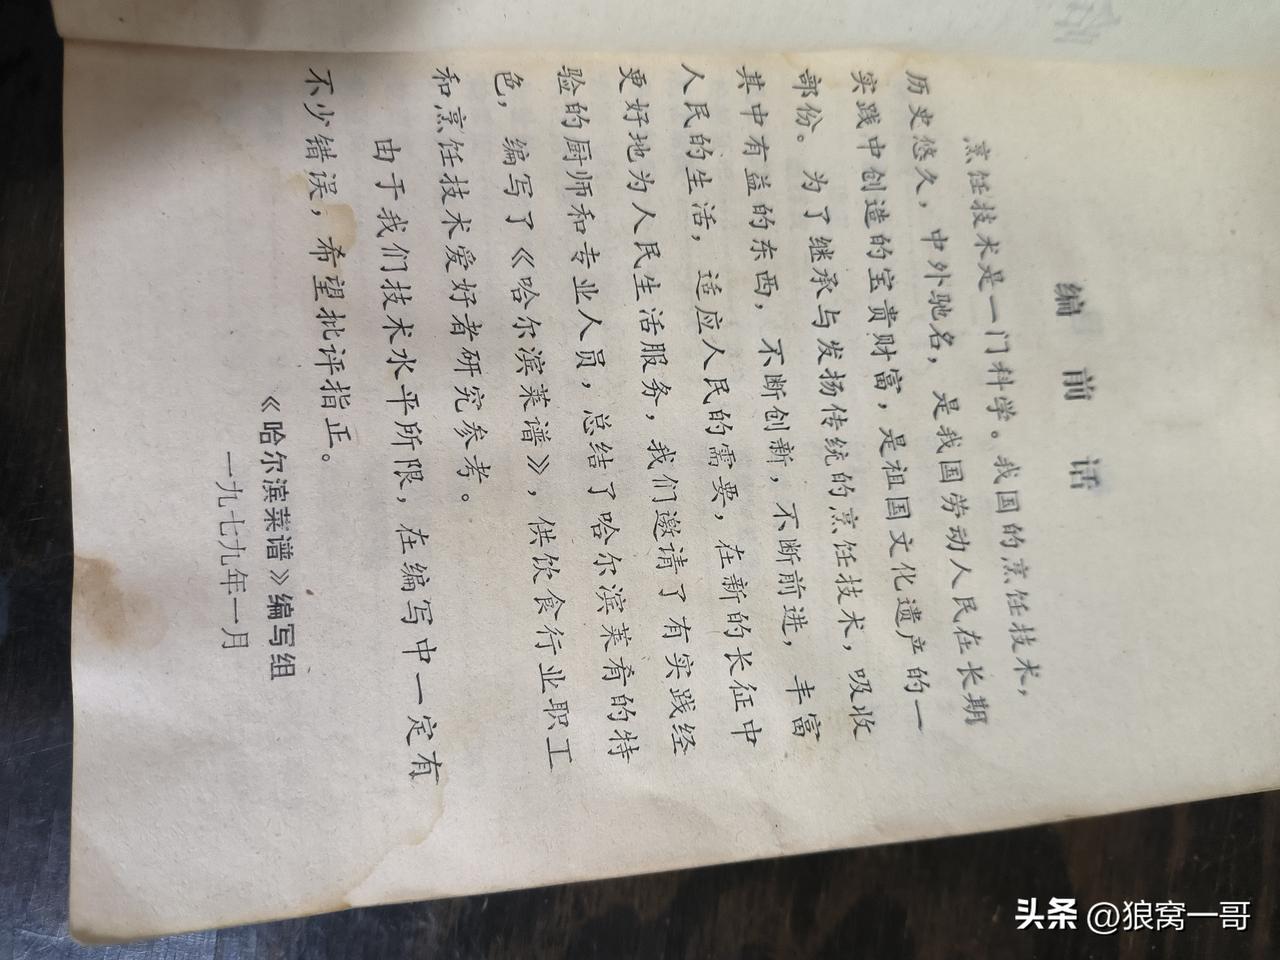 编前话
烹任技术是一门科学。我国的烹任技术，
历史悠久，中外驰名，是我国劳动人民在长期
实践中创造的宝贵财富，是祖国文化遗产的一
部份。为了继承与发扬传统的烹任技术，吸收
其中有益的东西，不断创新，不断前进，丰富
人民的生活，适应人民的需要，在新的长征中
更好地为人民生活服务，我们邀请了有实践经
验的厨师和专业人员，总结了哈尔滨菜肴的特
色，编写了《哈尔滨菜谱》，供饮食行业职工
和烹任技术爱好者研究参考。
由于我们技术水平所限，在编写中一定有
不少错误，希望批评指正。
《哈尔滨菜谱》编写组
一九七九年一月
头条 @狼窝一哥